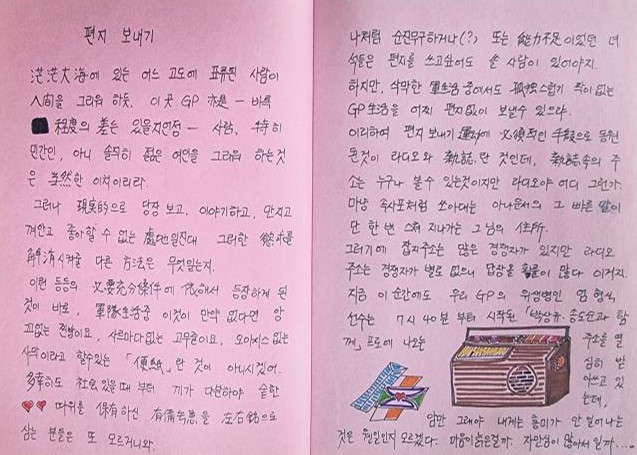 편지 보내기
茫茫大海에 있는 어느 고도에 표류된 사람이
人間을 그리워 하듯, 이 곳 GP 亦是 - 비록
程度의 差는 있을지언정 - 사람, 特히
민간인, 아니 솔직히 젊은 여인을 그리워 하는것
은 当然한 이치이리라.
그러나 現実的으로 당장 보고, 이야기하고, 만지고
껴안고 좋아할 수 없는 處地일진대 그러한 慾求를
解消시켜줄 다른 方法은 무엇일는지.
이런 등등의 必要充分條件에 依해서 등장하게 된
것이 바로, 軍隊生活중 이것이 만약 없다면 앙
꼬없는 찐빵이요, 사르마다없는 고무줄이요, 오아시스 없는
사막이라고 할수있는 「便紙」란 것이 아니시겠어.
多幸히도 社会있을때 부터 끼가 다분하야 숱한
♥♥ 따위를 保有하신 有備無患을 左右銘으로
삼는 분들은 또 모르거니와.
나처럼 순진무구하거나(?) 또는 能力不足이었던 녀
석들은 편지를 쓰고싶어도 쓸 사람이 있어야지.
하지만, 삭막한 軍生活 중에서도 스럽기 짝이없는
GP生活을 어찌 편지없이 보낼수 있으랴.
이리하여 편지 보내기 運動에 必須적인 手段으로 동원
된것이 라디오와 雜誌란 것인데, 雜誌속의 주
소는 누구나 볼수 있는것이지만 라디오야 어디 그런가.
마냥 속사포처럼 쏘아대는 아나운서의 그 빠른 말이
단 한번 스쳐 지나가는 그 님의 住所.
그러기에 잡지주소는 많은 경쟁자가 있지만 라디오
주소는 경쟁자가 별로 없으니 답장올 확률이 많다 이거지.
지금 이 순간에도 우리 GP의 위생병인 염 형식
선수는 7시 40분 부터 시작된 「박상규·송도순과 함
께」 프로에 나오는 주소를 열
심히 받
아쓰고 있
는데,
암만 그래야 내게는 흥미가 안 일어나는
것은 웬일인지 모르겠다. 마음이 늙은걸까. 자만심이 많아서 일까....